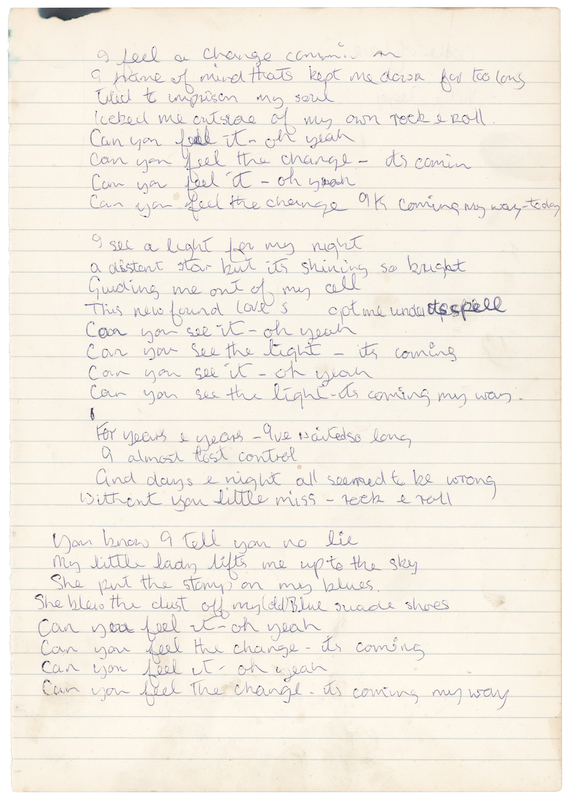 I feel a change commin on
A frame of mind thats kept me down far too long
Tried to imprison my soul
locked me outside of my own rock & roll.
Can you feel it - oh yeah
Can you feel the change - its comin
Can you feel it - oh yeah
Can you feel the change coming my way - today
I see a light for my night
a distant star but its shining so bright
Guiding me out of my cell
This new found love's got me under its spell
Can you see it - oh yeah
Can you see the light - its coming
Can you see it - oh yeah
Can you see the light - its coming my way.
For years & years - I've waited so long
I almost lost control
And days & night all seemed to be wrong
Without you little miss - rock & roll
You know I tell you no lie
My little lady lifts me up to the sky
She put the stamp on my blues.
She blew the dust off my (old) Blue suade shoes
Can you feel it - oh yeah
Can you feel the change - its coming
Can you feel it - oh yeah
Can you feel the change - its coming my way